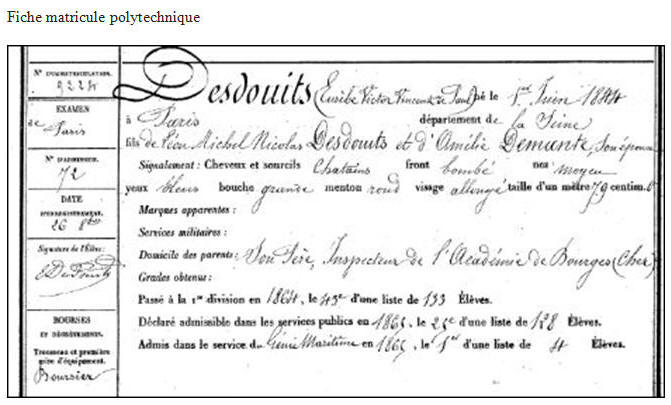 Fiche matricule polytechnique
N° D'IMMATRICULATION.
9224
EXAMEN
de Paris
N° D'ADMISSION.
72
DATE
D'ENREGISTREMENT.
26 8bre
Signature de l'Élève:
BOURSES
ET DÉGRÈVEMENTS.
Trousseau et première
mise d'équipement.
Boursier
Desdouits (Eusèbe Victor Vincent de Paul) né le 1er Juin 1844
à Paris département de la Seine
fils de Léon Michel Nicolas Desdouits et d'Amélie Demante, son épouse
Signalement : Cheveux et sourcils Chatains front bombé nez moyen
yeux bleus bouche grande menton rond visage allongé taille d'un mètre 79 centim.
Marques apparentes :
Services militaires :
Domicile des parents : Son Père, Inspecteur de l'Académie de Bourges (Cher)
Grades obtenus :
Passé à la 1re division en 1864, le 43e d'une liste de 133 Élèves.
Déclaré admissible dans les services publics en 1865, le 25e d'une liste de 128 Élèves.
Admis dans le service du Génie Maritime en 1865, le 1er d'une liste de 4 Élèves.